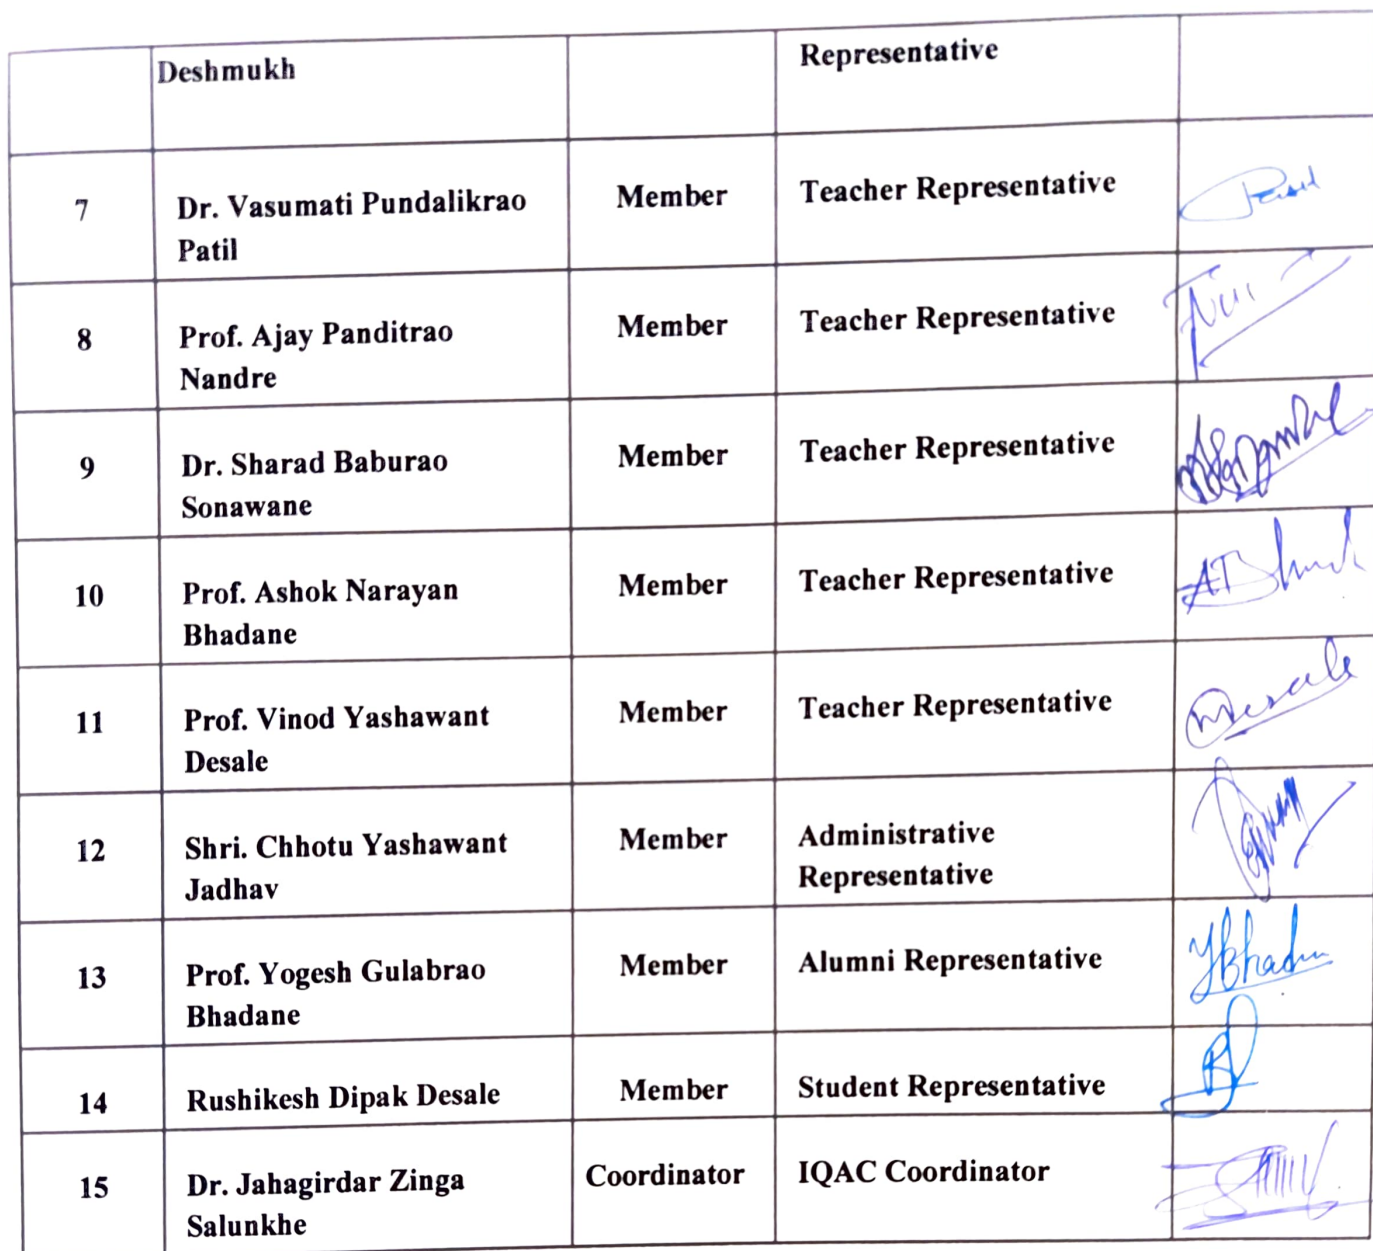 Deshmukh Representative
7 Dr. Vasumati Pundalikrao Member Teacher Representative
Patil
8 Prof. Ajay Panditrao Member Teacher Representative
Nandre
9 Dr. Sharad Baburao Member Teacher Representative
Sonawane
10 Prof. Ashok Narayan Member Teacher Representative
Bhadane
11 Prof. Vinod Yashawant Member Teacher Representative
Desale
12 Shri. Chhotu Yashawant Member Administrative
Jadhav Representative
13 Prof. Yogesh Gulabrao Member Alumni Representative
Bhadane
14 Rushikesh Dipak Desale Member Student Representative
15 Dr. Jahagirdar Zinga Coordinator IQAC Coordinator
Salunkhe